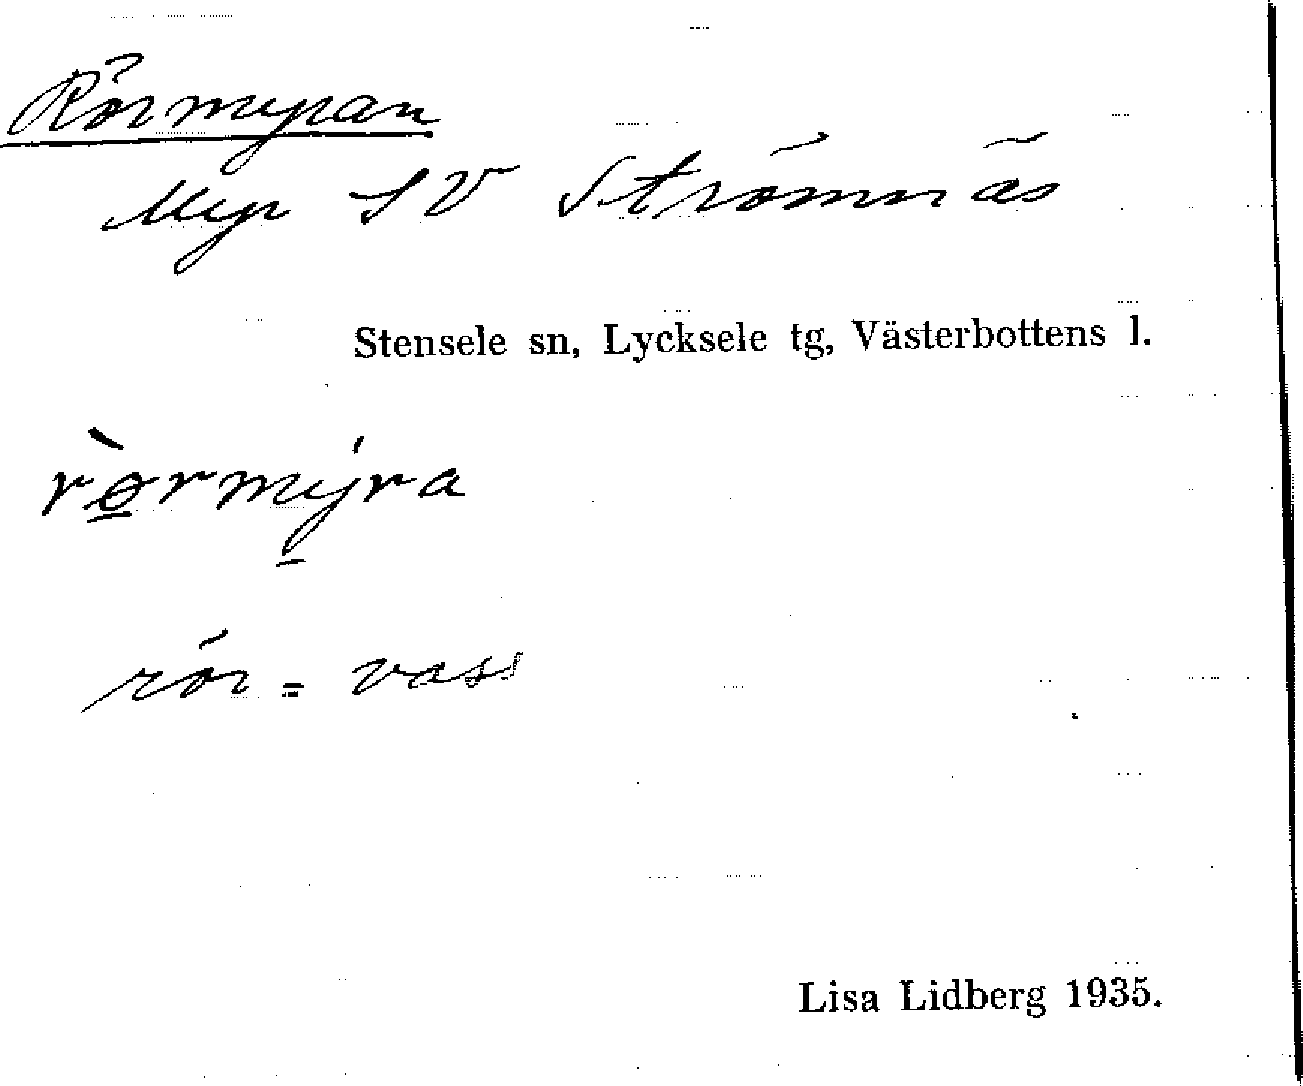 Rörmyran
Myr SV Strömnäs
Stensele sn, Lycksele tg, Västerbottens l.
rø̲̀rmý̲ra
rör = vass
Lisa Lidberg 1935.